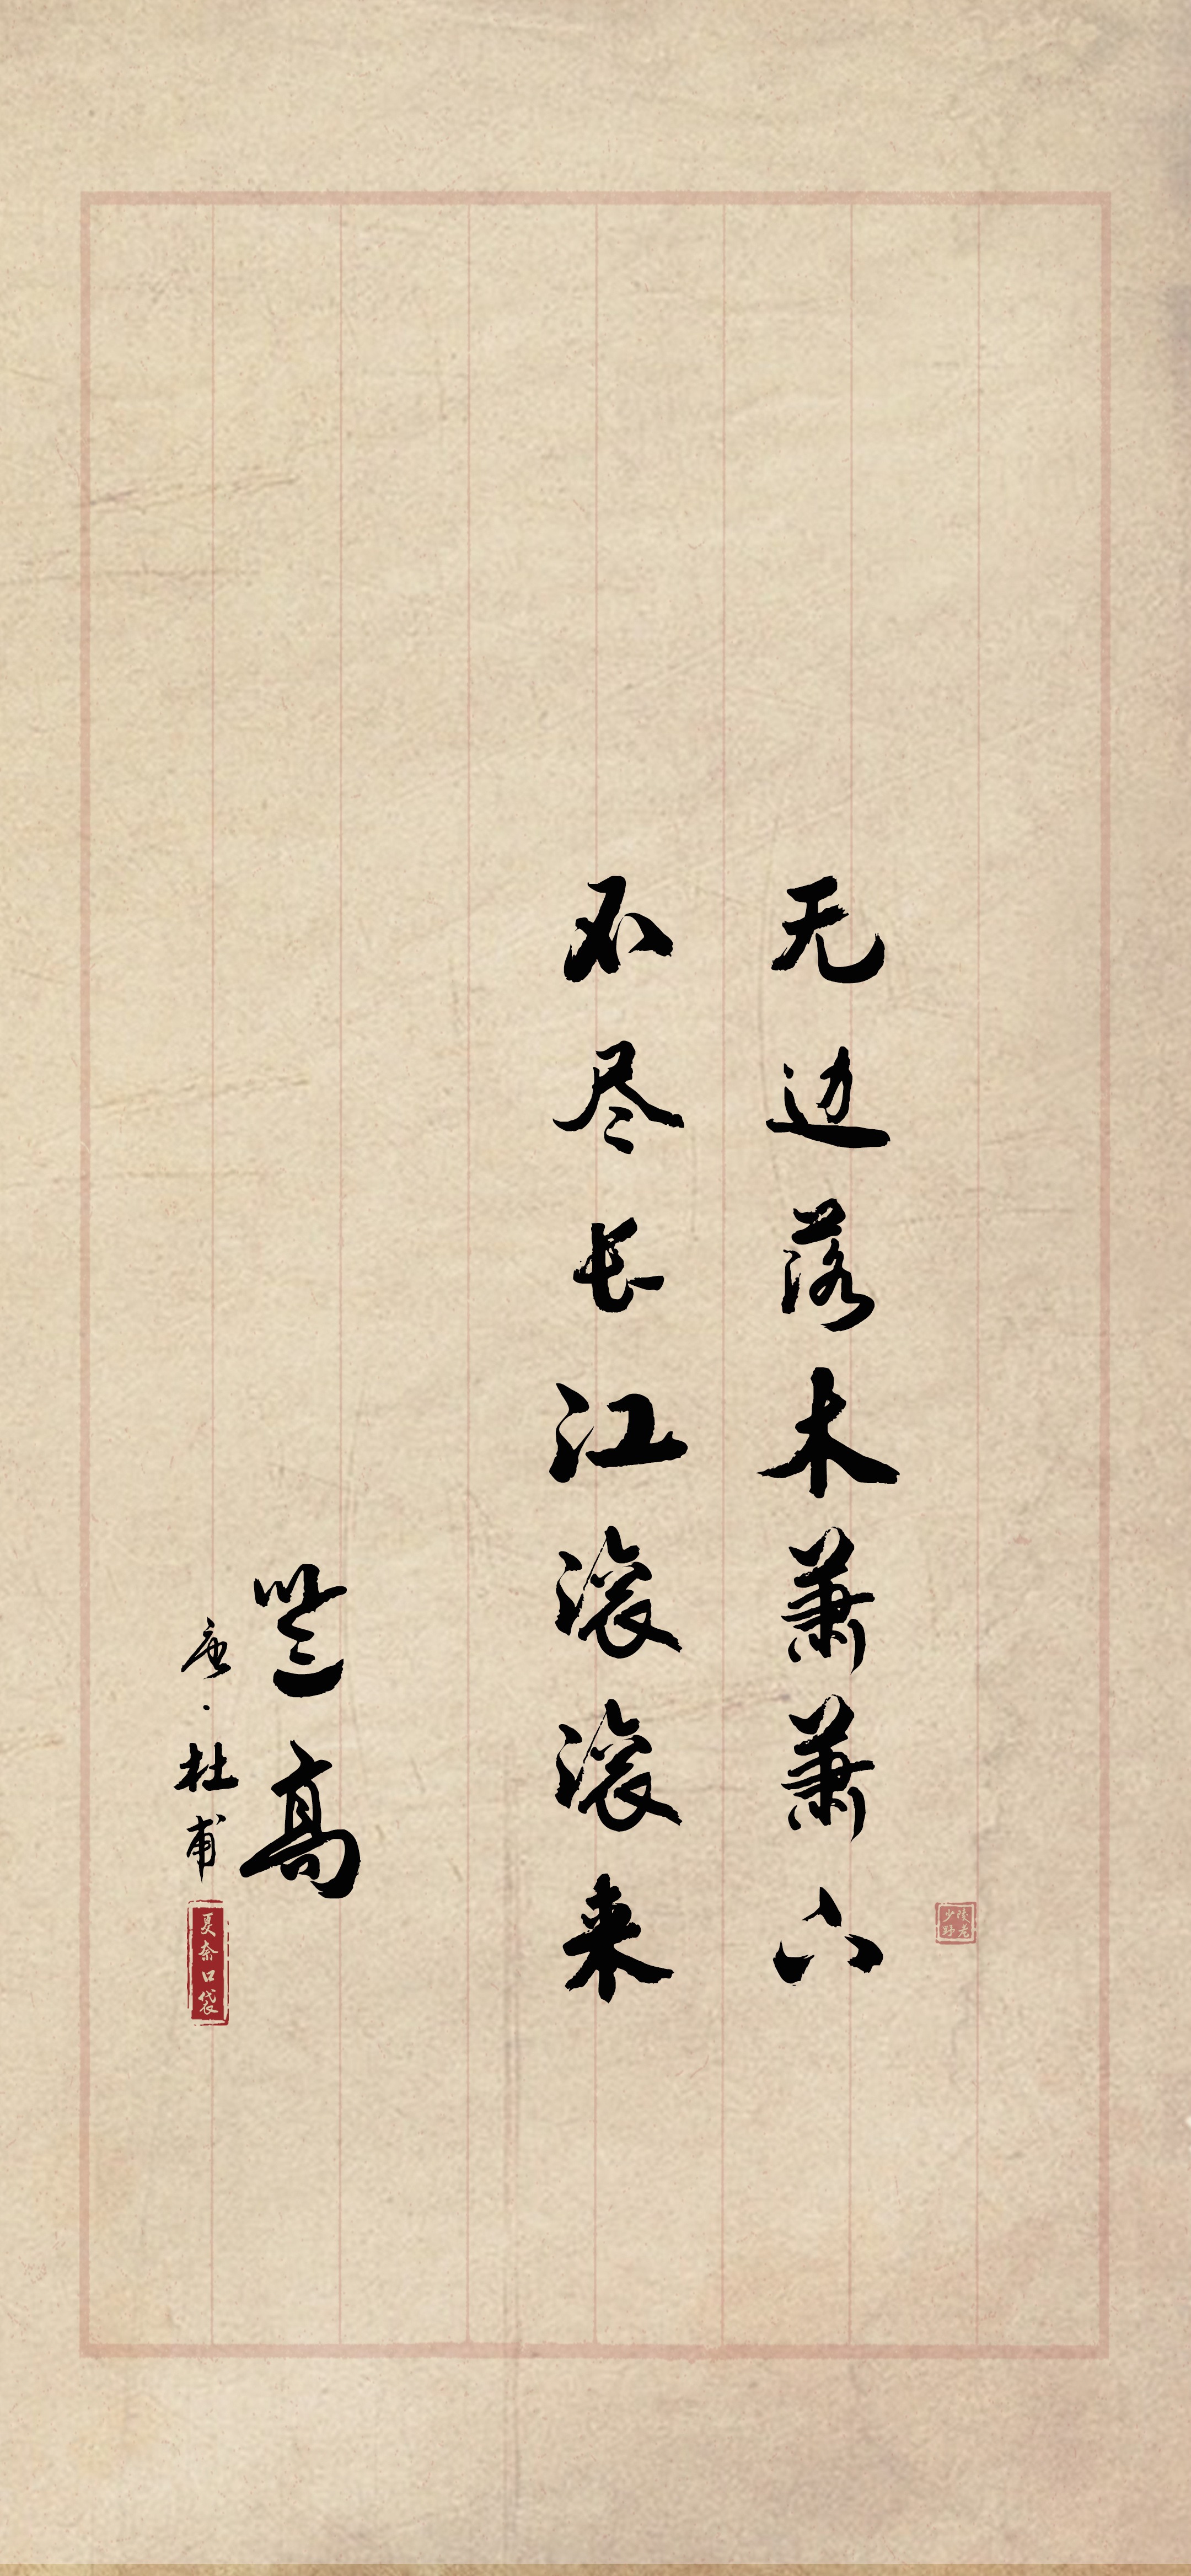 无边落木萧萧下
不尽长江滚滚来
登高
唐·杜甫
夏奈口袋
少陵野老